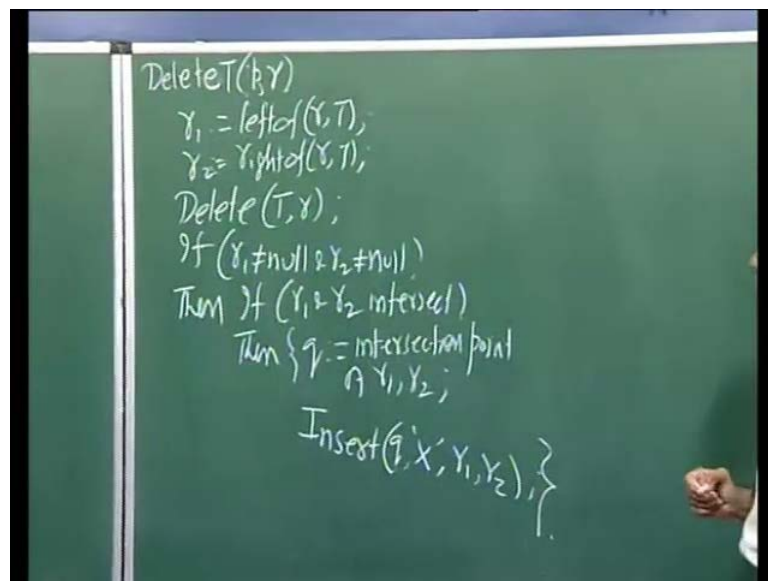 DeleteT(p, γ)
γ₁ := leftof(γ, T);
γ₂ := rightof(γ, T);
Delete(T, γ);
If (γ₁ ≠ null & γ₂ ≠ null)
Then If (γ₁ & γ₂ intersect)
Then { q := intersection point
of γ₁, γ₂;
Insert(q, 'X', γ₁, γ₂); }